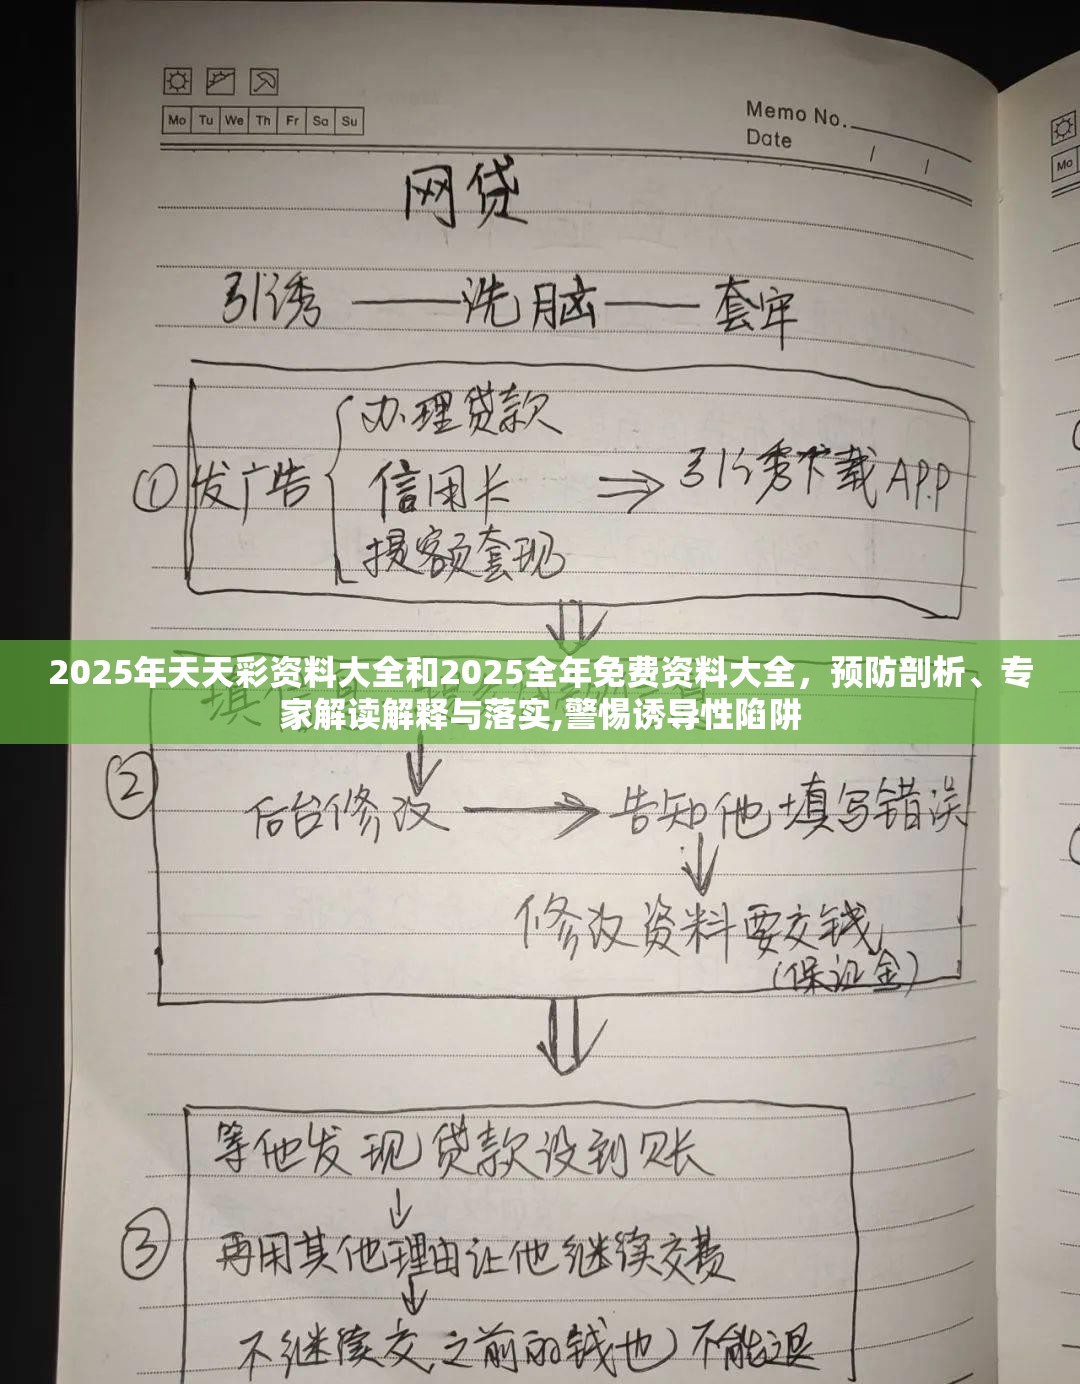 Mo Tu We Th Fr Sa Su
Memo No.
Date / /
Mo
网贷
引诱——洗脑——套牢
① 发广告
办理贷款
信用卡
提额套现
⇒ 引诱下载APP
2025年天天彩资料大全和2025全年免费资料大全，预防剖析、专
家解读解释与落实,警惕诱导性陷阱
②
后台修改 → 告知他填写错误
修改资料要交钱
(保证金)
③
等他发现贷款没到账
再用其他理由让他继续交费
不继续交,之前的钱也不能退